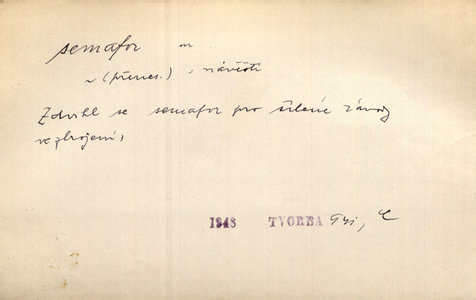 semafor m
~ (přenes.), návěští
Zdvihl se semafor pro šílené závody
ve zbrojení,
1948 TVORBA